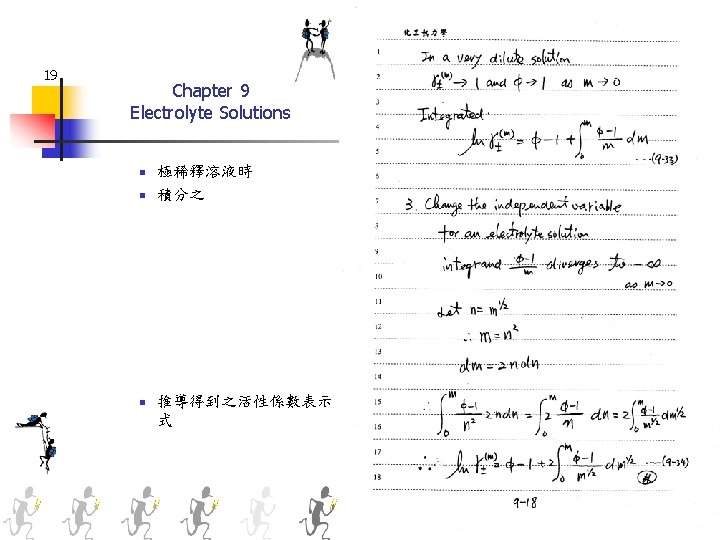 19
Chapter 9
Electrolyte Solutions
極稀釋溶液時
積分之
推導得到之活性係數表示
式
化工熱力學
1 In a very dilute solution
2 γ±^(m) → 1 and ϕ → 1 as m → 0
3 Integrated.
4 ln γ±^(m) = ϕ-1 + ∫₀^m (ϕ-1)/m dm
5 ...(9-33)
6
7 3. Change the independent variable
8 for an electrolyte solution
9 integrand (ϕ-1)/m diverges to -∞
10 as m→0
11 Let n = m^½
12 ∴ m = n²
13 dm = 2ndn
14
15 ∴ ∫₀^m (ϕ-1)/n² 2ndn = ∫₀^m 2 (ϕ-1)/n dn = 2∫₀^m (ϕ-1)/m^½ dm^½
16
17 ∵ ln γ±^(m) = ϕ-1 + 2∫₀^m (ϕ-1)/m^½ dm^½ ...(9-34)
18
9-18